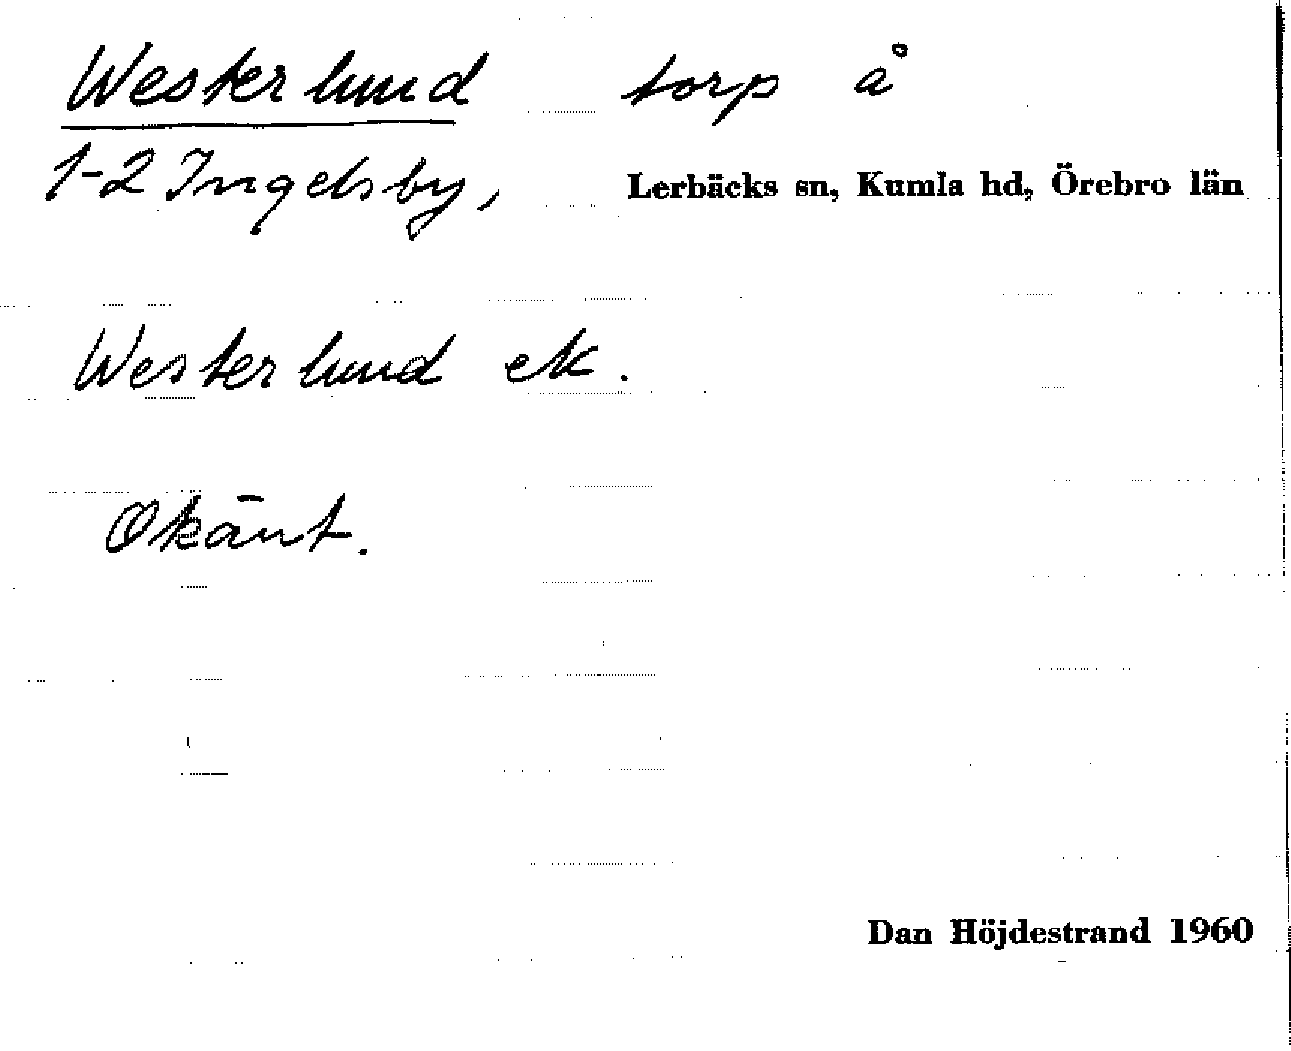 Westerlund torp å
1-2 Ingelsby, Lerbäcks sn, Kumla hd, Örebro län
Westerlund ek.
Okänt.
Dan Höjdestrand 1960